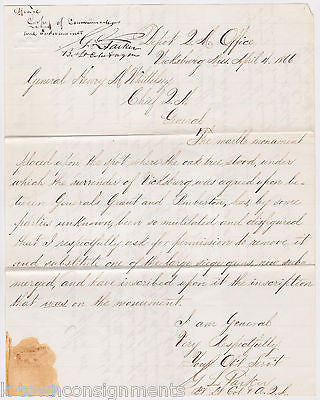 Office
Copy of Communication
and endorsement
G. L. Parker
Depot Q. M. Office
Vicksburg Miss April 4, 1866
General Henry M Whittlesey
Chief Q. M.
General
The marble monument
placed upon the spot where the oak tree stood, under
which the surrender of Vicksburg was agreed upon be-
tween Generals Grant and Pemberton, has by some
parties unknown, been so mutilated and disfigured
that I respectfully ask for permission to remove it
and substitute one of the large siege guns now sub-
merged, and have inscribed upon it the inscription
that was on the monument.
I am General
Very Respectfully
Your Obt Servt
G. L. Parker
Bt. Lt Col & A. Q. M.
k-townconsignments